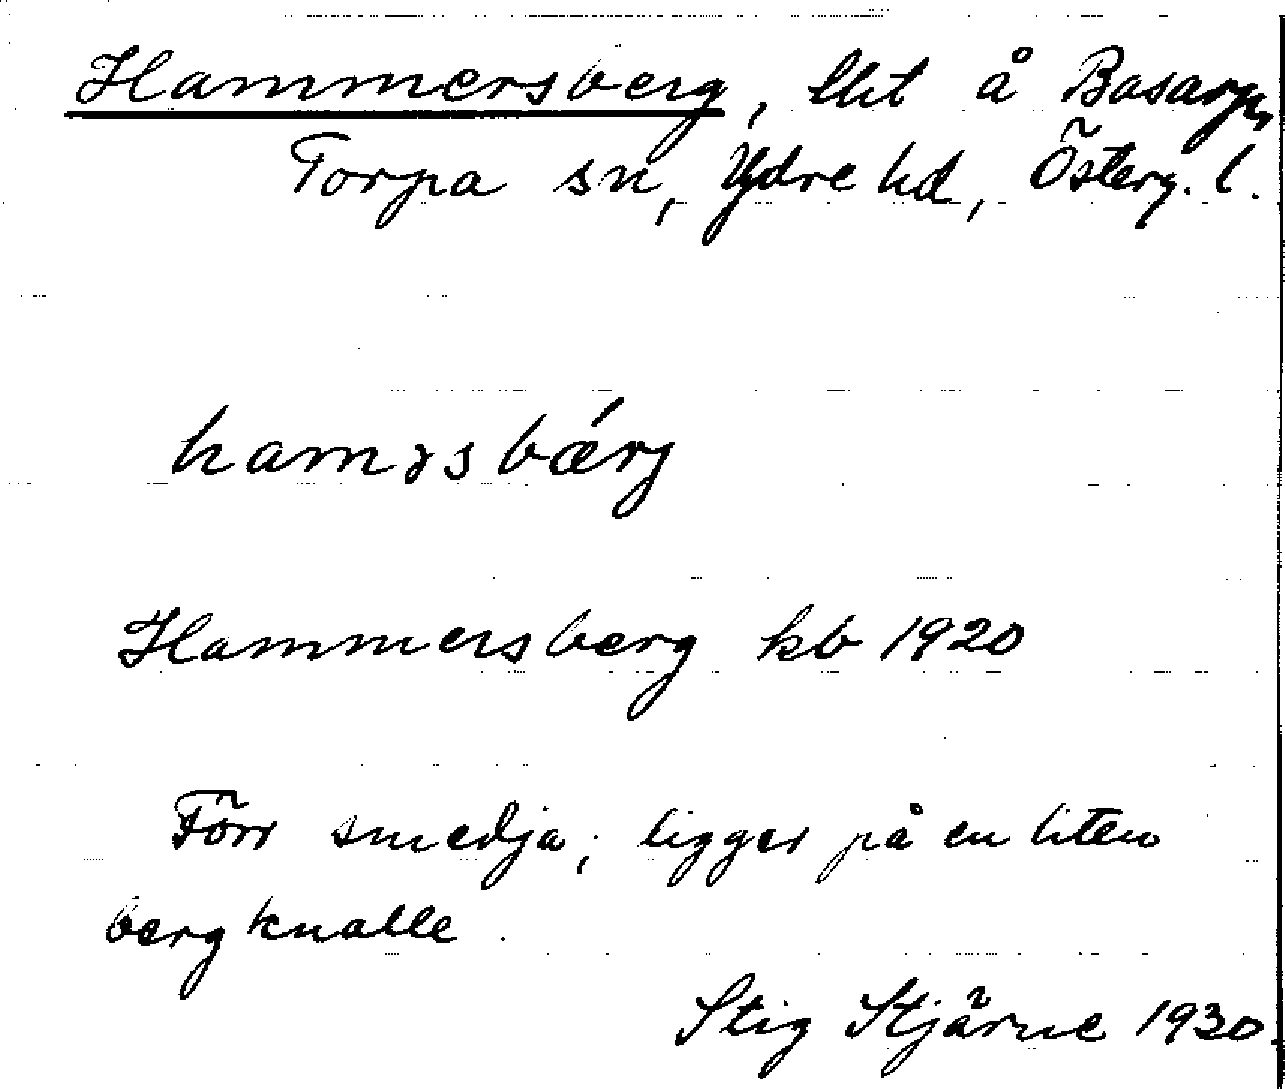 Hammersberg, lht å Basarp,
Torpa sn, Ydre hd, Österg. l.
haməsbǽrj
Hammersberg kb 1920
Förr smedja; ligger på en liten
bergknalle.
Stig Stjärne 1930.